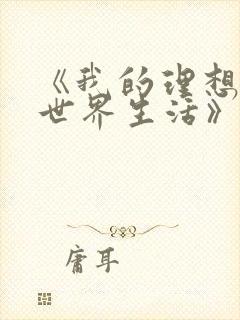 《我的理想
世界生活》
庸耳